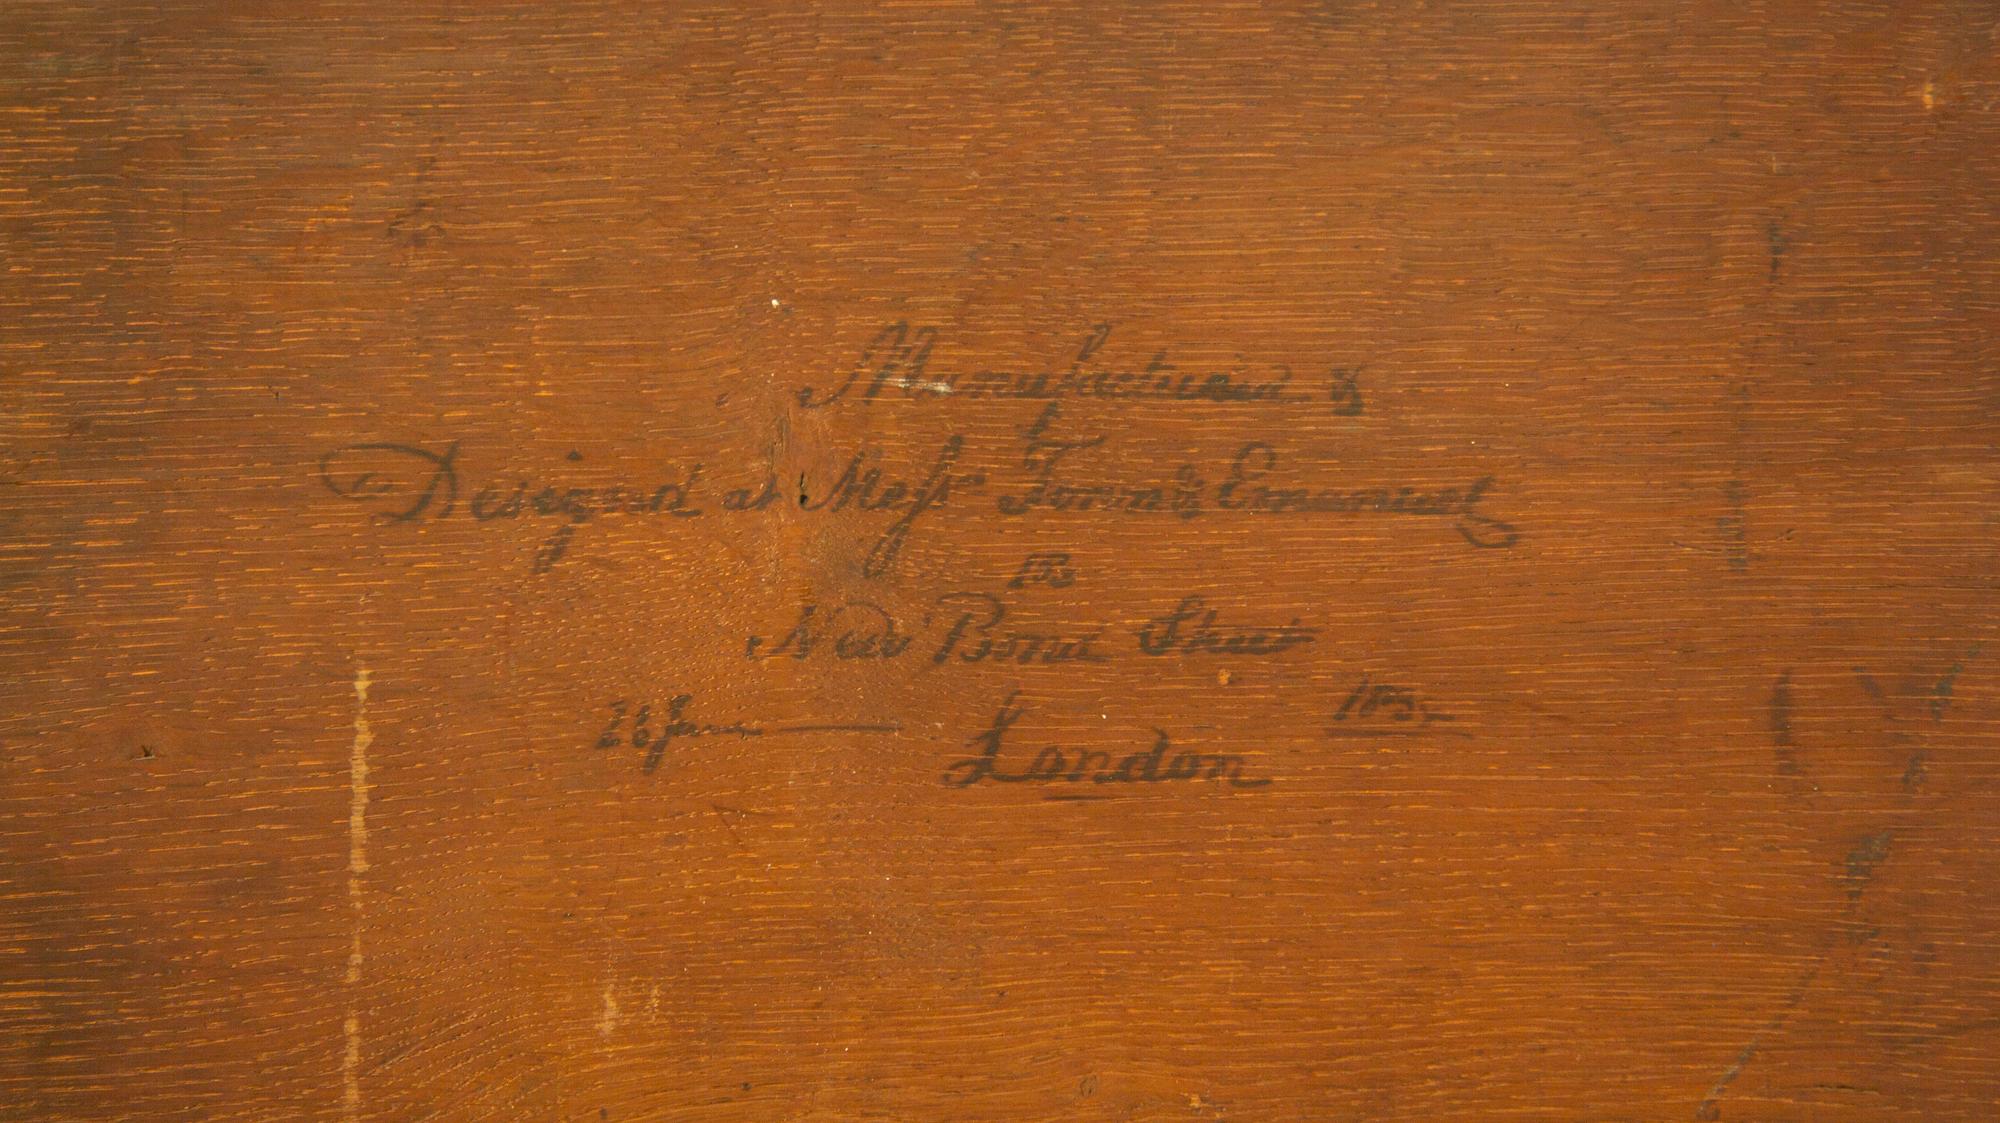 Manufactured &
Designed at Messrs Town & Emanuel
103
New Bond Street
26 Jany
London